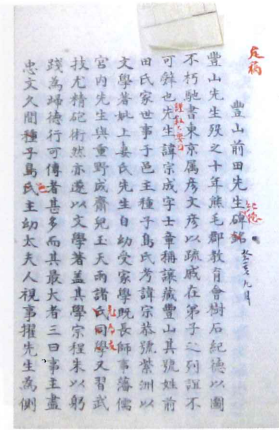 豐山前田先生碑銘
豐山先生歿之十年熊毛郡教育會樹石紀德以圖
不朽馳書東京屬彥文彥以疏戚在弟子之列誼不
可辭也先生諱宗成字士章稱讓藏豐山其號姓前
田氏家世事子邑主種子島氏考諱宗恭號紫洲以
文學著妣上妻氏先生自幼受家學既長師事藩儒
宮内先生與重野成齋兒玉天雨諸氏同學又習武
技尤精砲術然亦遂以文學著蓋其學宗程朱以躬
踐為歸德行可傳者甚多而其最大者三曰事主盡
忠文久間種子島氏主幼太夫人視事擢先生為側